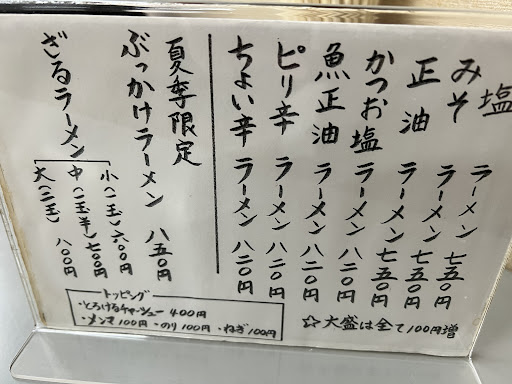 塩ラーメン 七五〇円
みそラーメン 七五〇円
正油ラーメン 七五〇円
かつお塩ラーメン 八二〇円
魚正油ラーメン 八二〇円
ピリ辛ラーメン 八二〇円
ちょい辛ラーメン 八二〇円
☆大盛は全て100円増
夏季限定
ぶっかけラーメン 八五〇円
ざるラーメン
小(一玉)六〇〇円
中(一玉半)七〇〇円
大(二玉)八〇〇円
トッピング
・とろけるチャーシュー 400円
・メンマ100円 ・のり100円 ・ねぎ100円